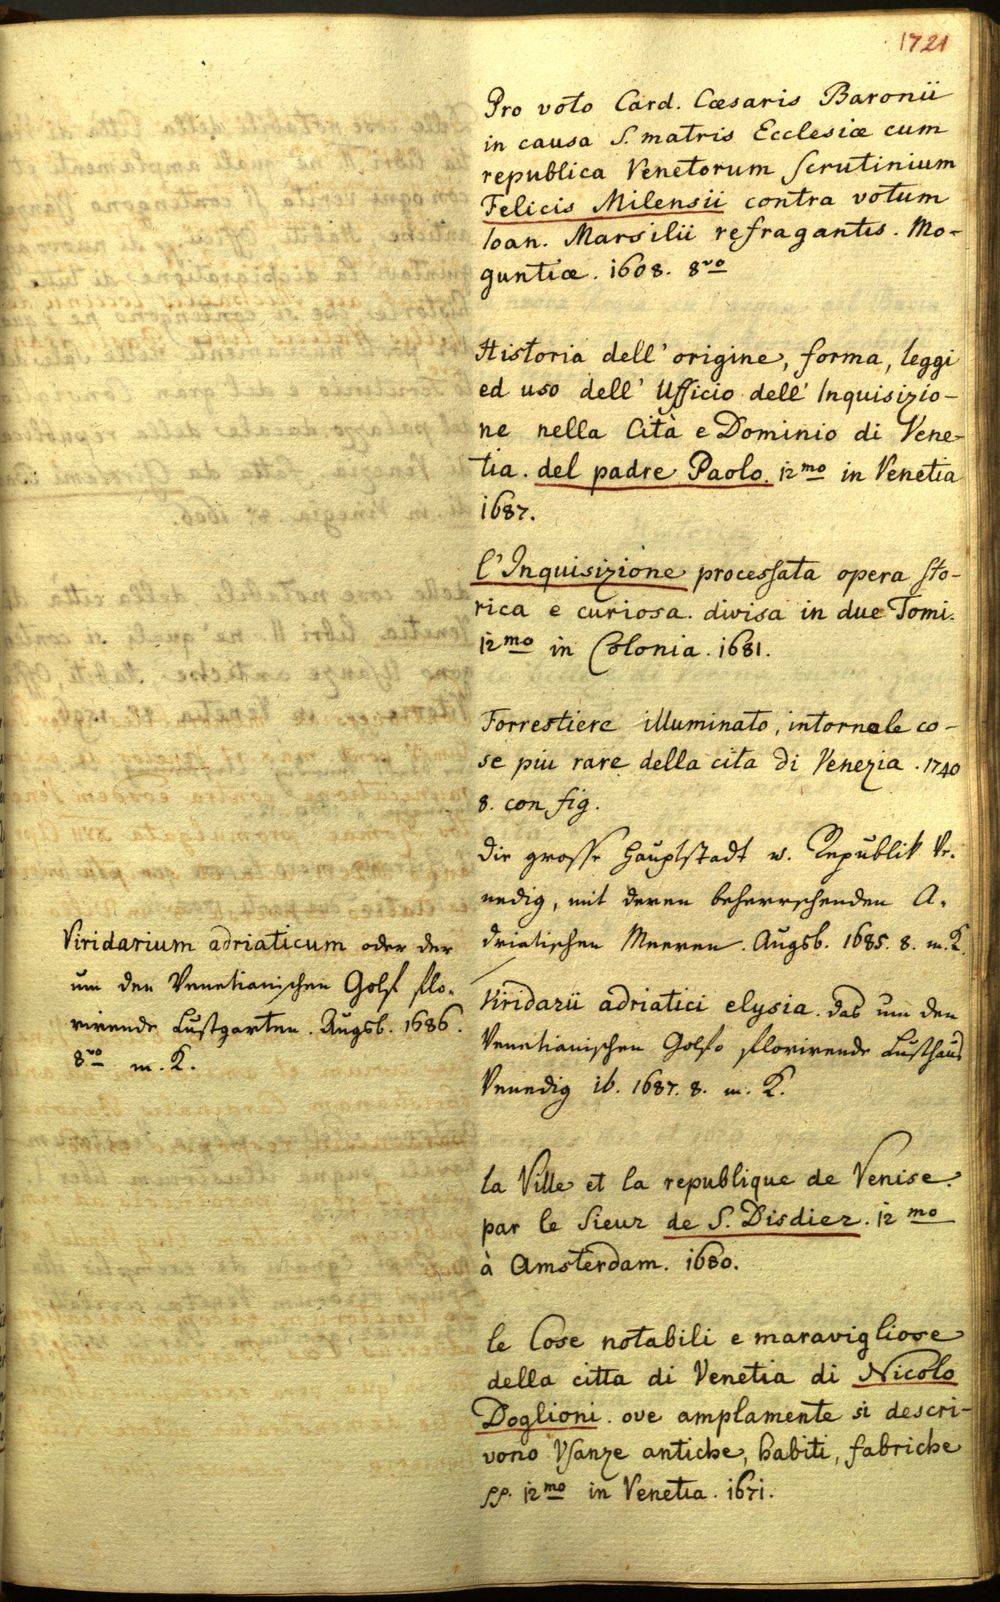 1721
Pro voto Card. Cæsaris Baronii
in causa S. matris Ecclesiæ cum
republica Venetorum scrutinium
Felicis Milensii contra votum
Ioan. Marsilii refragantis. Mo-
guntiæ. 1608. 8vo
Historia dell' origine, forma, leggi
ed uso dell' Ufficio dell' Inquisizio-
ne nella Cità e Dominio di Vene-
tia. del padre Paolo. 12mo in Venetia
1687.
l'Inquisizione processata opera sto-
rica e curiosa. divisa in due Tomi.
12mo in Colonia. 1681.
Forrestiere illuminato, intornole co-
se piu rare della cita di Venezia. 1740
8. con fig.
die grosse Hauptstadt u. Republik Ve-
nedig, mit deren beherrschenden A-
driatischen Meeren. Augsb. 1685. 8. m. K.
Viridarium adriaticum oder der
um den Venetianischen Golf flo-
rirende Lustgarten. Augsb. 1686.
8vo m. K.
Viridarii adriatici elysia. das um den
Venetianischen Golfo florirende Lusthaus
Venedig ib. 1687. 8. m. K.
la Ville et la republique de Venise.
par le Sieur de S. Disdier. 12mo
à Amsterdam. 1680.
le Cose notabili e maravigliose
della citta di Venetia di Nicolo
Doglioni. ove amplamente si descri-
vono Usanze antiche, habiti, fabriche
pp. 12mo in Venetia. 1671.